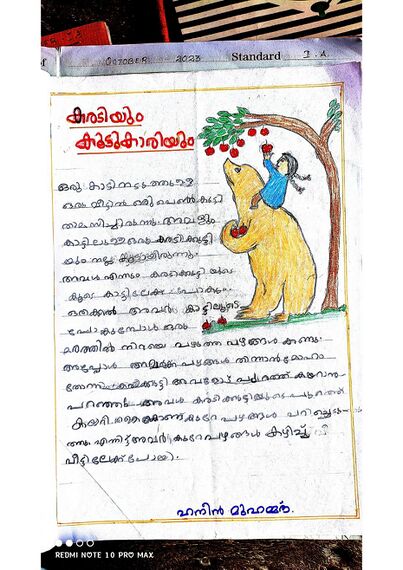 OCTOBER 2023 Standard I.A
കരടിയും
കൂട്ടുകാരിയും
ഒരു കാടിനടുത്തുള്ള
ഒരു വീട്ടിൽ ഒരു പെൺകുട്ടി
താമസിച്ചിരുന്നു. അവളും
കാട്ടിലുള്ള ഒരു കരടിക്കുട്ടി
യും നല്ല കൂട്ടായിരുന്നു.
അവൾ എന്നും കരടിക്കുട്ടിയുടെ
കൂടെ കാട്ടിലേക്ക് പോകും.
ഒരിക്കൽ അവർ കാട്ടിലൂടെ
പോകുമ്പോൾ ഒരു
മരത്തിൽ നിറയെ പഴുത്ത പഴങ്ങൾ കണ്ടു.
അപ്പോൾ അവർക്ക് പഴങ്ങൾ തിന്നാൻ മോഹം
തോന്നി. കരടിക്കുട്ടി അവളോട് പുറത്ത് കയറാൻ
പറഞ്ഞു. അവൾ കരടിക്കുട്ടിയുടെ പുറത്ത്
കയറി. കൈകൊണ്ട് കുറേ പഴങ്ങൾ പറിച്ചു
ത്തു. എന്നിട്ട് അവർ കുറേ പഴങ്ങൾ കഴിച്ച്
വീട്ടിലേക്ക് പോയി.
ഹനിൻ മുഹമ്മദ്.
REDMI NOTE 10 PRO MAX